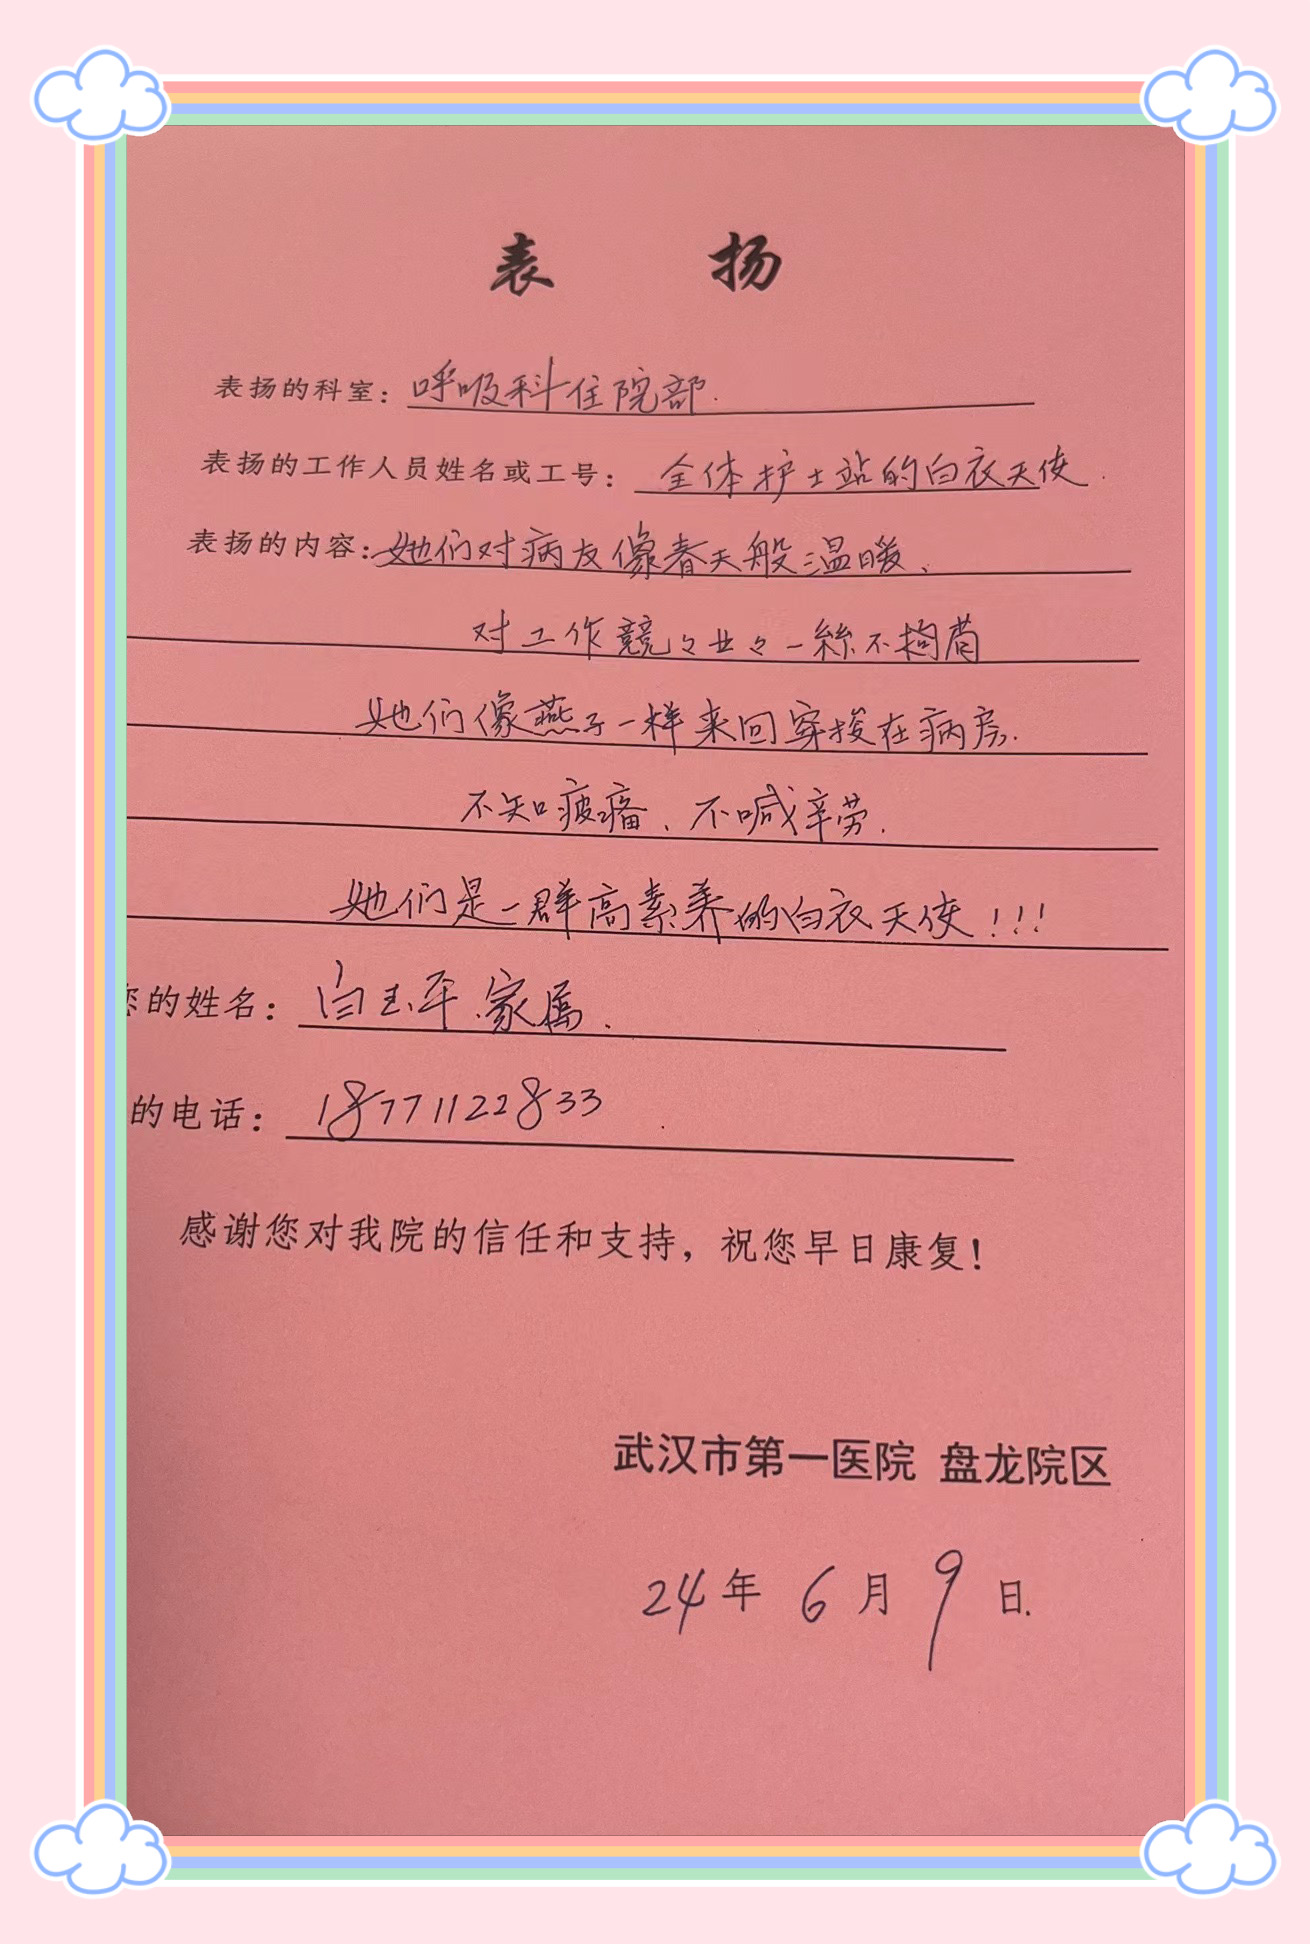 表 扬
表扬的科室：呼吸科住院部.
表扬的工作人员姓名或工号：全体护士站的白衣天使.
表扬的内容：她们对病友像春天般温暖、
对工作競々业々一絲不拘苟
她们像燕子一样来回穿梭在病房.
不知疲痛、不喊辛劳.
她们是一群高素养的白衣天使!!!
您的姓名：白玉平.家属.
的电话：18771122833
感谢您对我院的信任和支持，祝您早日康复！
武汉市第一医院 盘龙院区
24年 6月 9日.